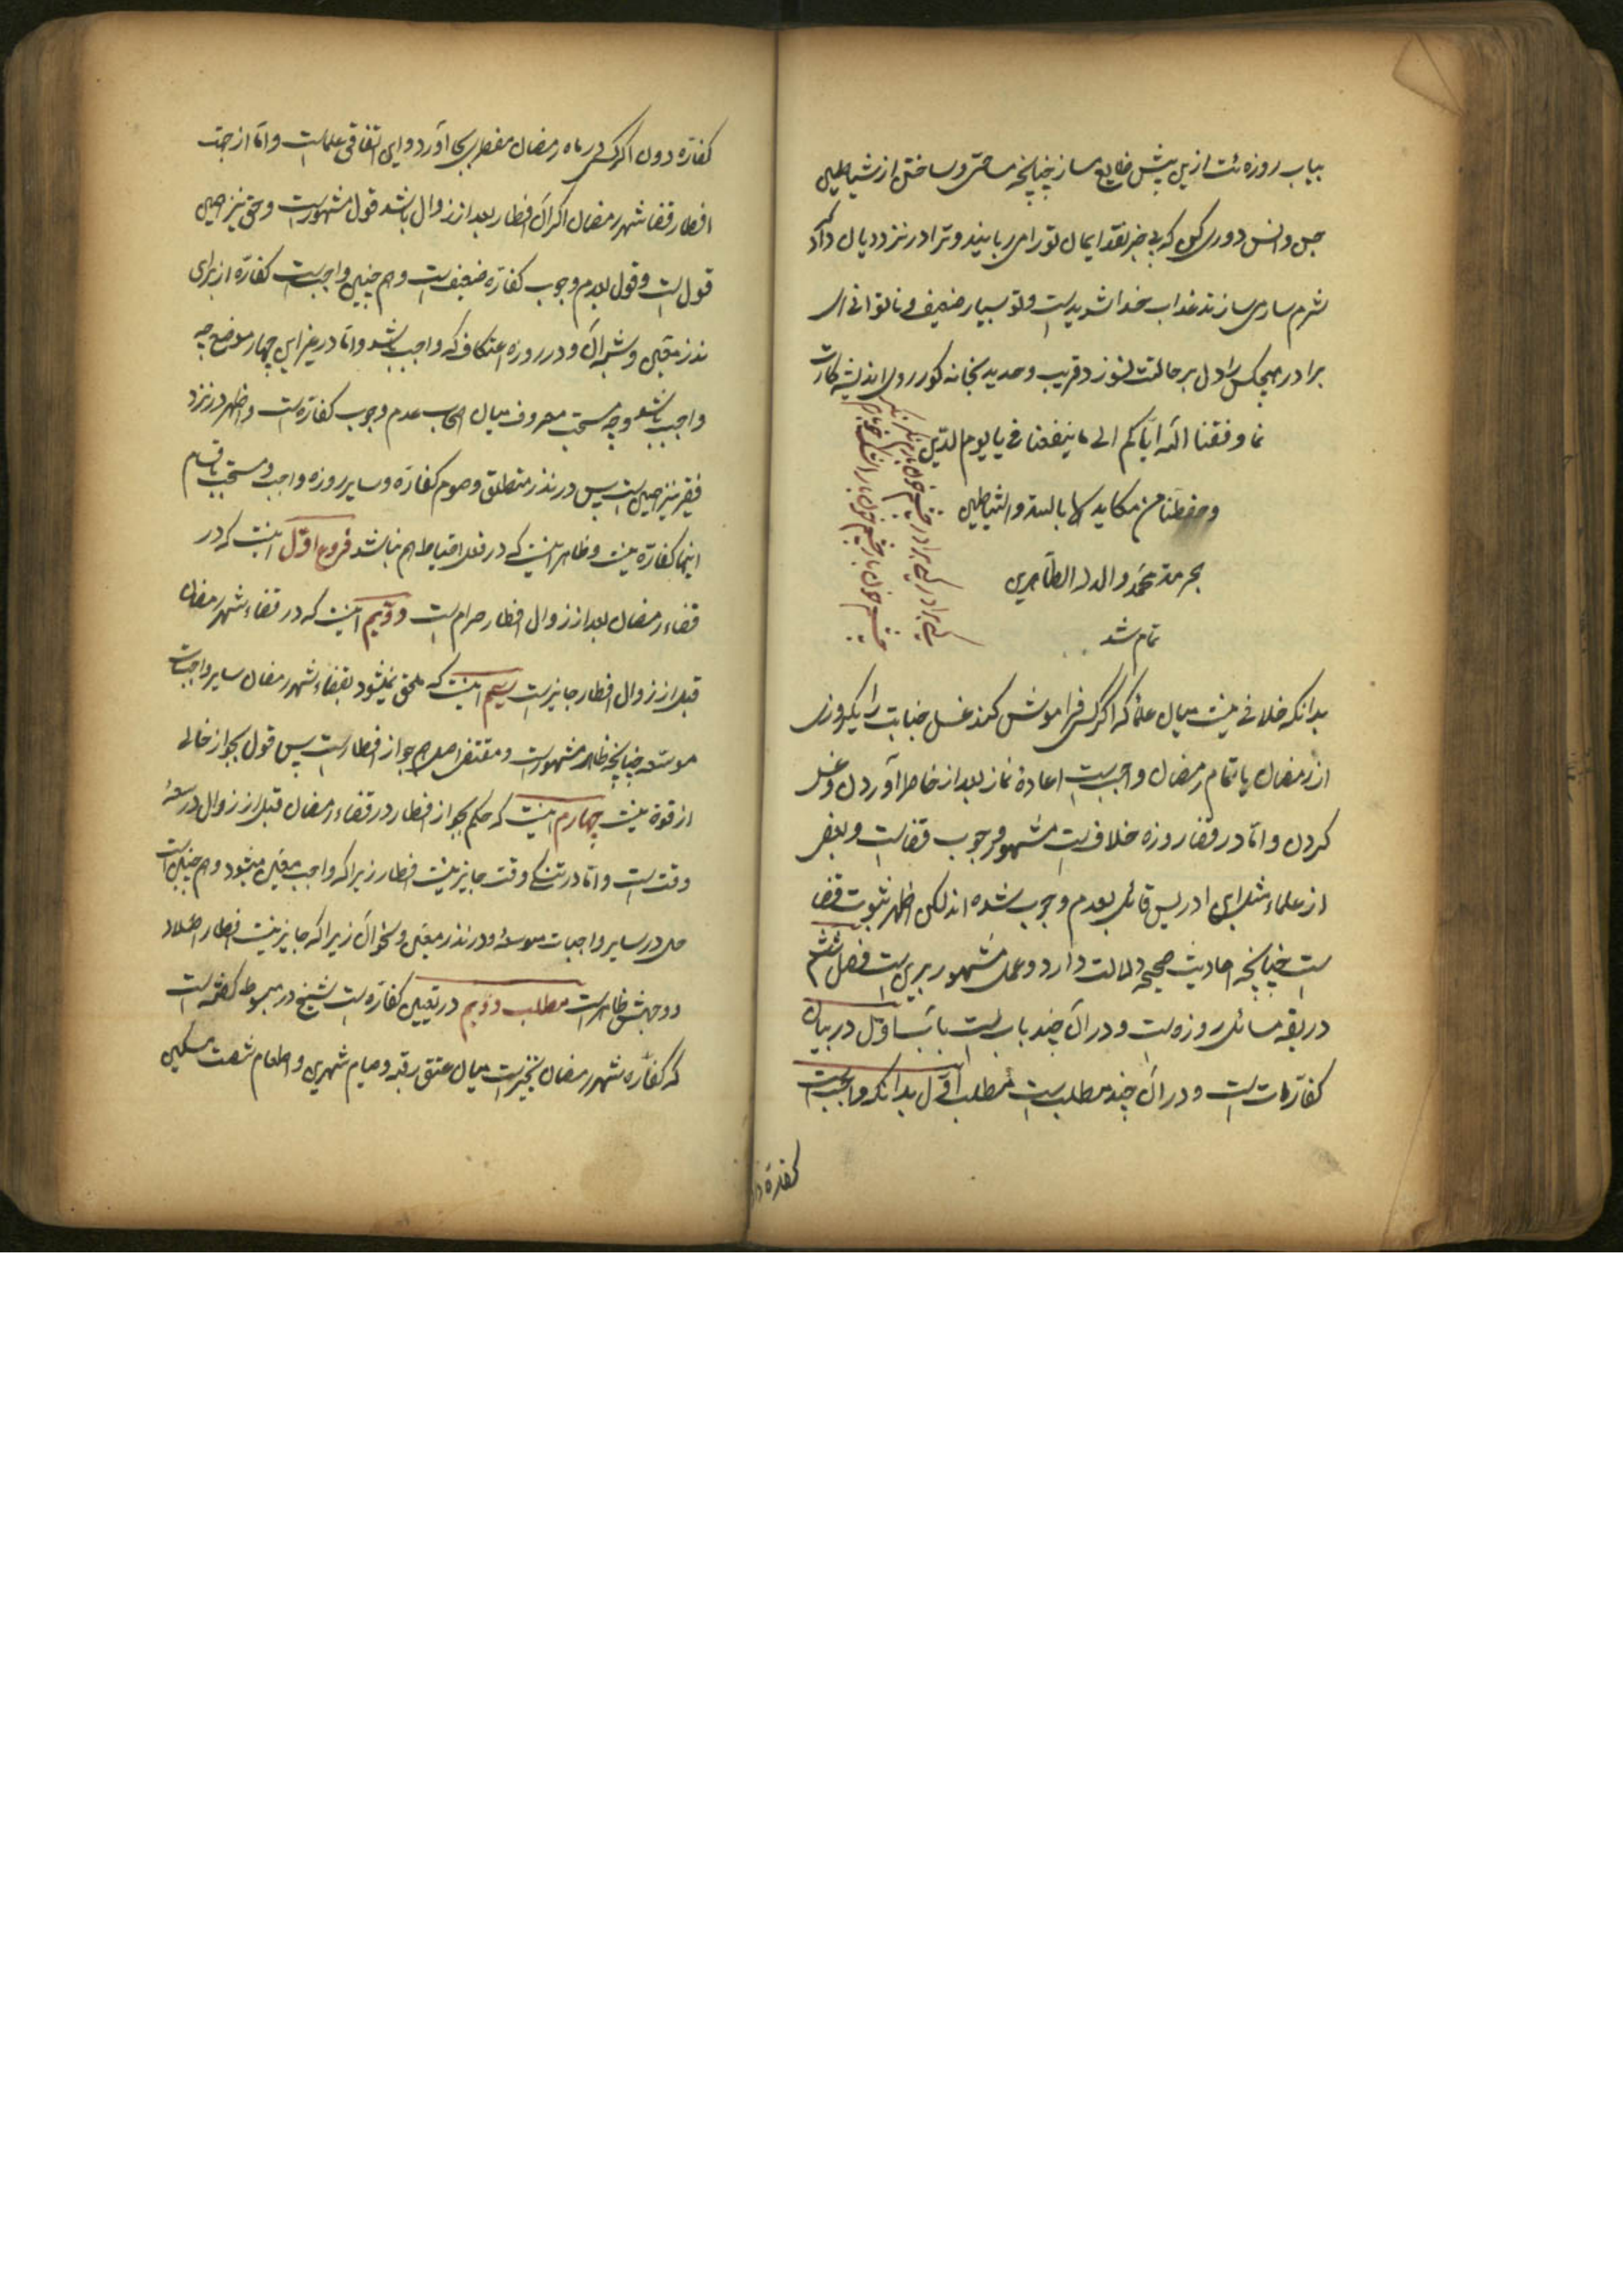 بیاب روزه ئت ازین پیش ضایع مساز چنانچه ساختی و ساختن از شیاطین
جن و انس دوری کن که بی خبر نقد ایمان تو را می ربایند و ترا در نزد دیان داد کر
شرم ساری سازند عذاب خدا شدیدست و تو بسیار ضعیف و ناتوانی ای
برادر هیچکس را دل بر حالت نسوزد قریب و بعید بخانه کور روی اندیشه کارت
نما وفقنا الله ایاکم الی ما ینفعنا فی یوم الدین
و حفظنا من مکاید والشیاطین
بحرمة محمد واله الطاهرین
تمام شد
بدانکه خلافی نیست میان علما که اگر کسی فراموش کند غسل جنابت را یکروزی
از رمضان یا تمام رمضان واجبست اعادهٔ نماز بعد از خاطر آوردن و غسل
کردن و اما در قضا روزه خلافست مشهور وجوب قضاست و بعضی
از علماء مثل ابن ادریس قائل بعدم وجوب شده اند لکن اظهر ثبوت قضا
ست چنانچه احادیث صحیحه دلالت دارد و عمل مشهور برین است فصل ششم
در بقیه مسائل روزه است و در آن چند باب است باب اول در بیان
کفارات است و در آن چند مطلب است مطلب اول بدانکه واجبست
کفاره دا
کفاره دادن اگر کسی در ماه رمضان مفطری بجا آورد و این اتفاقی علماست و اما از جهت
افطار قضا شهر رمضان اگر آن افطار بعد از زوال باشد قول مشهورست و حق نیز همین
قول است و قول بعدم وجوب کفاره ضعیف است و هم چنین واجبست کفاره از برای
نذر معین و شبه آن و در روزه اعتکاف که واجب باشد و اما در غیر این چهار موضع چه
واجب باشد و چه مستحب معروف میان اصحاب عدم وجوب کفاره است و اظهر در نزد
فقیر نیز همین است پس در نذر مطلق و صوم کفاره و سایر روزه واجب و مستحب باقسام
اینها کفاره نیست و ظاهر اینست که در فعل احتیاط هم نباشد فروع اول اینست که در
قضاء رمضان بعد از زوال افطار حرام است دویم اینست که در قضاء شهر رمضان
قبل از زوال افطار جایز است سیم اینست که ملحق نمیشود بقضاء شهر رمضان سایر واجبات
موسعه چنانچه ظاهر مشهورست و مقتضی اصل هم جواز افطارست پس قول بجواز خالی
از قوة نیست چهارم اینست که حکم بجواز افطار در قضاء رمضان قبل از زوال در سعهٔ
وقت است و اما در تنگی وقت جایز نیست افطار زیرا که واجب معین میشود و هم چنین است
حال در سایر واجبات موسعه و در نذر معین و نحو آن زیرا که جایز نیست افطار اصلا
و وجهش ظاهرست مطلب دویم در تعیین کفاره است شیخ در مبسوط گفته است
که کفاره شهر رمضان تخییرست میان عتق رقبه و صیام شهرین و اطعام شصت مسکین